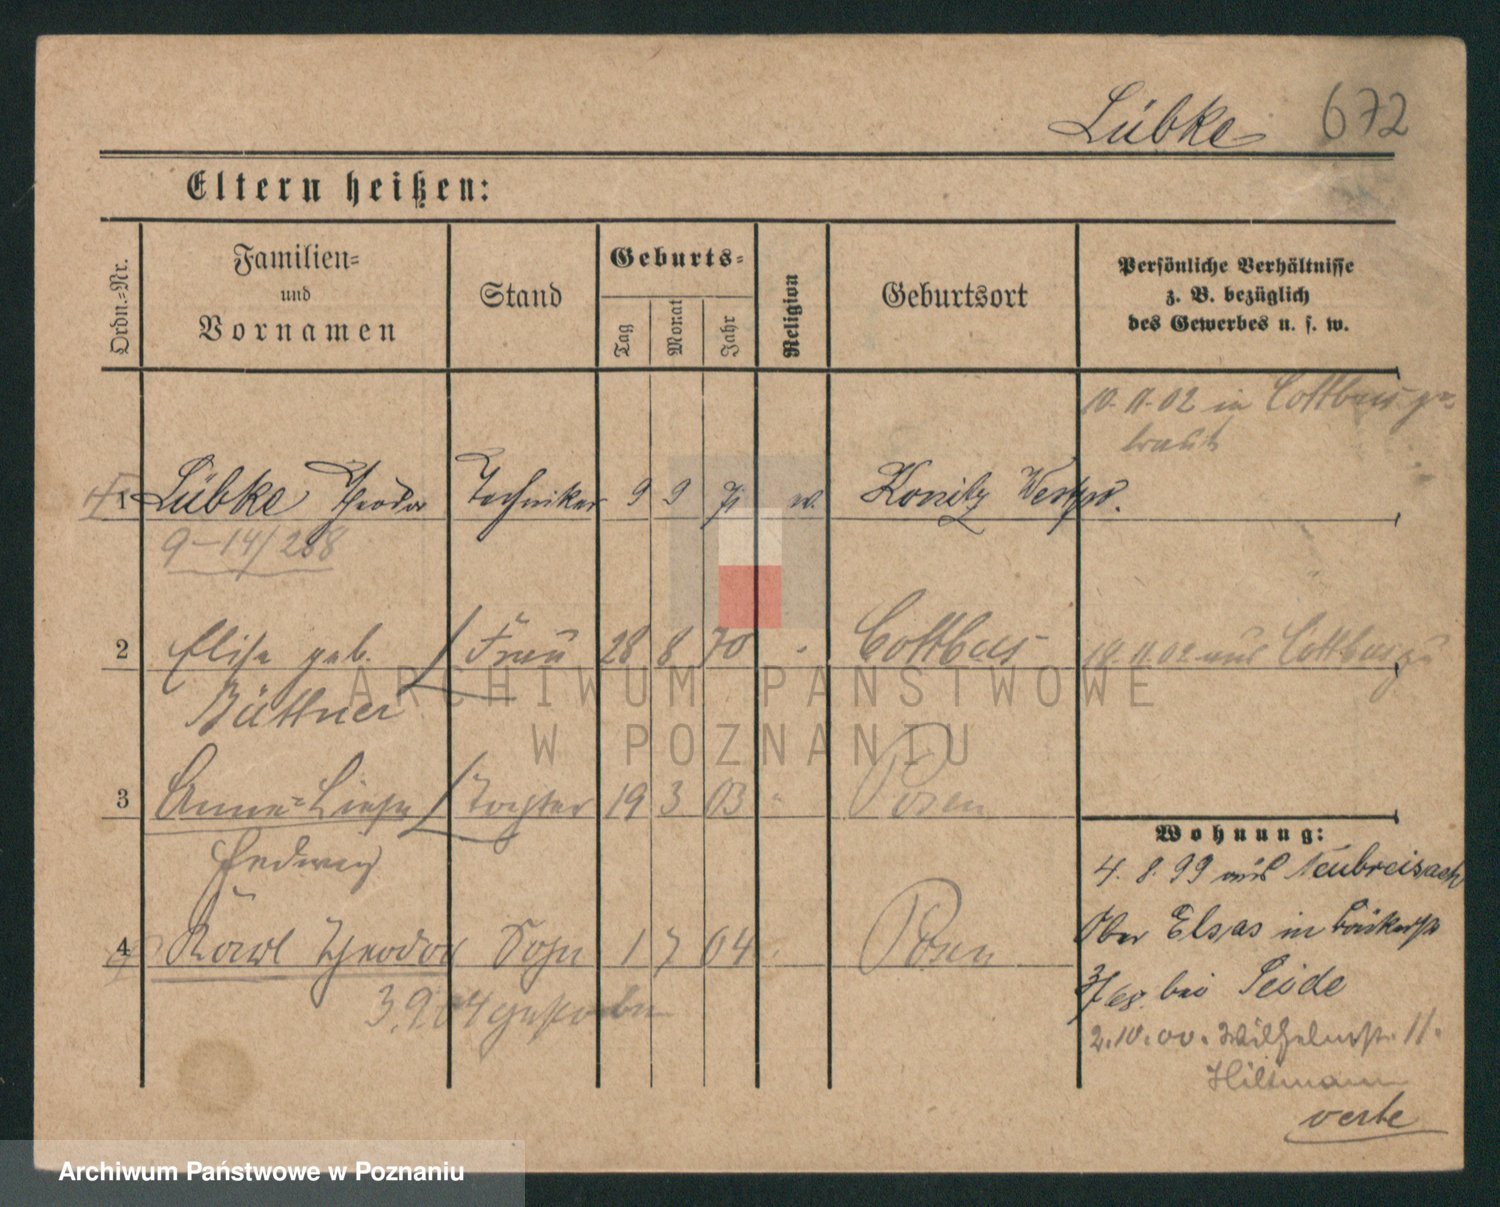 Lübke 672
Eltern heißen:
Ordn.=Nr.
Familien=
und
Vornamen
Stand
Geburts=
Tag
Monat
Jahr
Religion
Geburtsort
Persönliche Verhältnisse
z. B. bezüglich
des Gewerbes u. s. w.
10. 11. 02 in Cottbus ge-
traut
1 Lübke Theodor Techniker 9 9 71 Konitz Westpr.
9-14/288
2 Elise geb. Frau 28 8 70 Cottbus 18. 11. 02 aus Cottbus zu
Büttner
3 Anne=Liese Tochter 19 3 03 Posen
Hedwig
4 Karl Theodor Sohn 1 7 04 Posen
3.9.04 gestorben
Wohnung:
4. 8. 99 aus Neubreisach
Ober Elsas in Bäckerstr
bei Seide
2. 10. 00. Wilhelmstr. 11.
Hiltmann
verte
ARCHIWUM PAŃSTWOWE
W POZNANIU
Archiwum Państwowe w Poznaniu